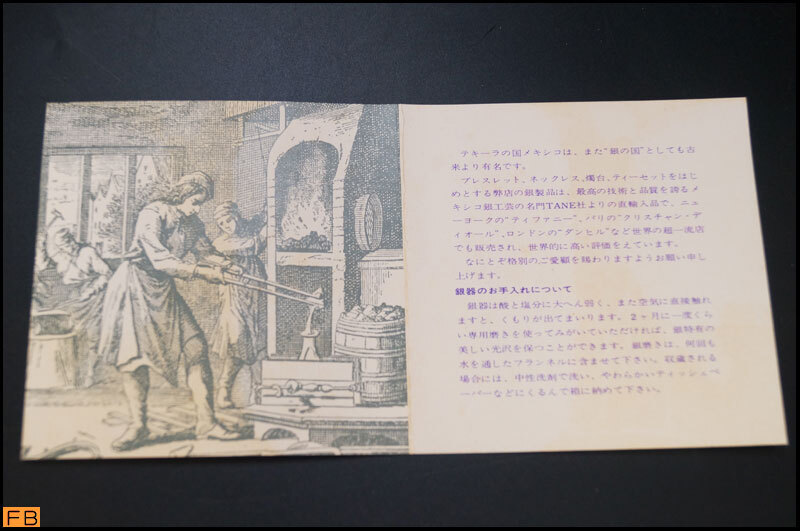 テキーラの国メキシコは、また“銀の国”としても古
来より有名です。
ブレスレット、ネックレス、燭台、ティーセットをはじ
めとする弊店の銀製品は、最高の技術と品質を誇るメ
キシコ銀工芸の名門TANE社よりの直輸入品で、ニュ
ーヨークの“ティファニー”、パリの“クリスチャン・デ
ィオール”、ロンドンの“ダンヒル”など世界の超一流店
でも販売され、世界的に高い評価をえています。
なにとぞ格別のご愛顧を賜わりますようお願い申し
上げます。
銀器のお手入れについて
銀器は酸と塩分に大へん弱く、また空気に直接触れ
ますと、くもりが出てまいります。2ヶ月に一度くら
い専用磨きを使ってみがいていただければ、銀特有の
美しい光沢を保つことができます。銀磨きは、何回も
水を通したフランネルに含ませて下さい。収蔵される
場合には、中性洗剤で洗い、やわらかいティッシュペ
ーパーなどにくるんで箱に納めて下さい。
FB